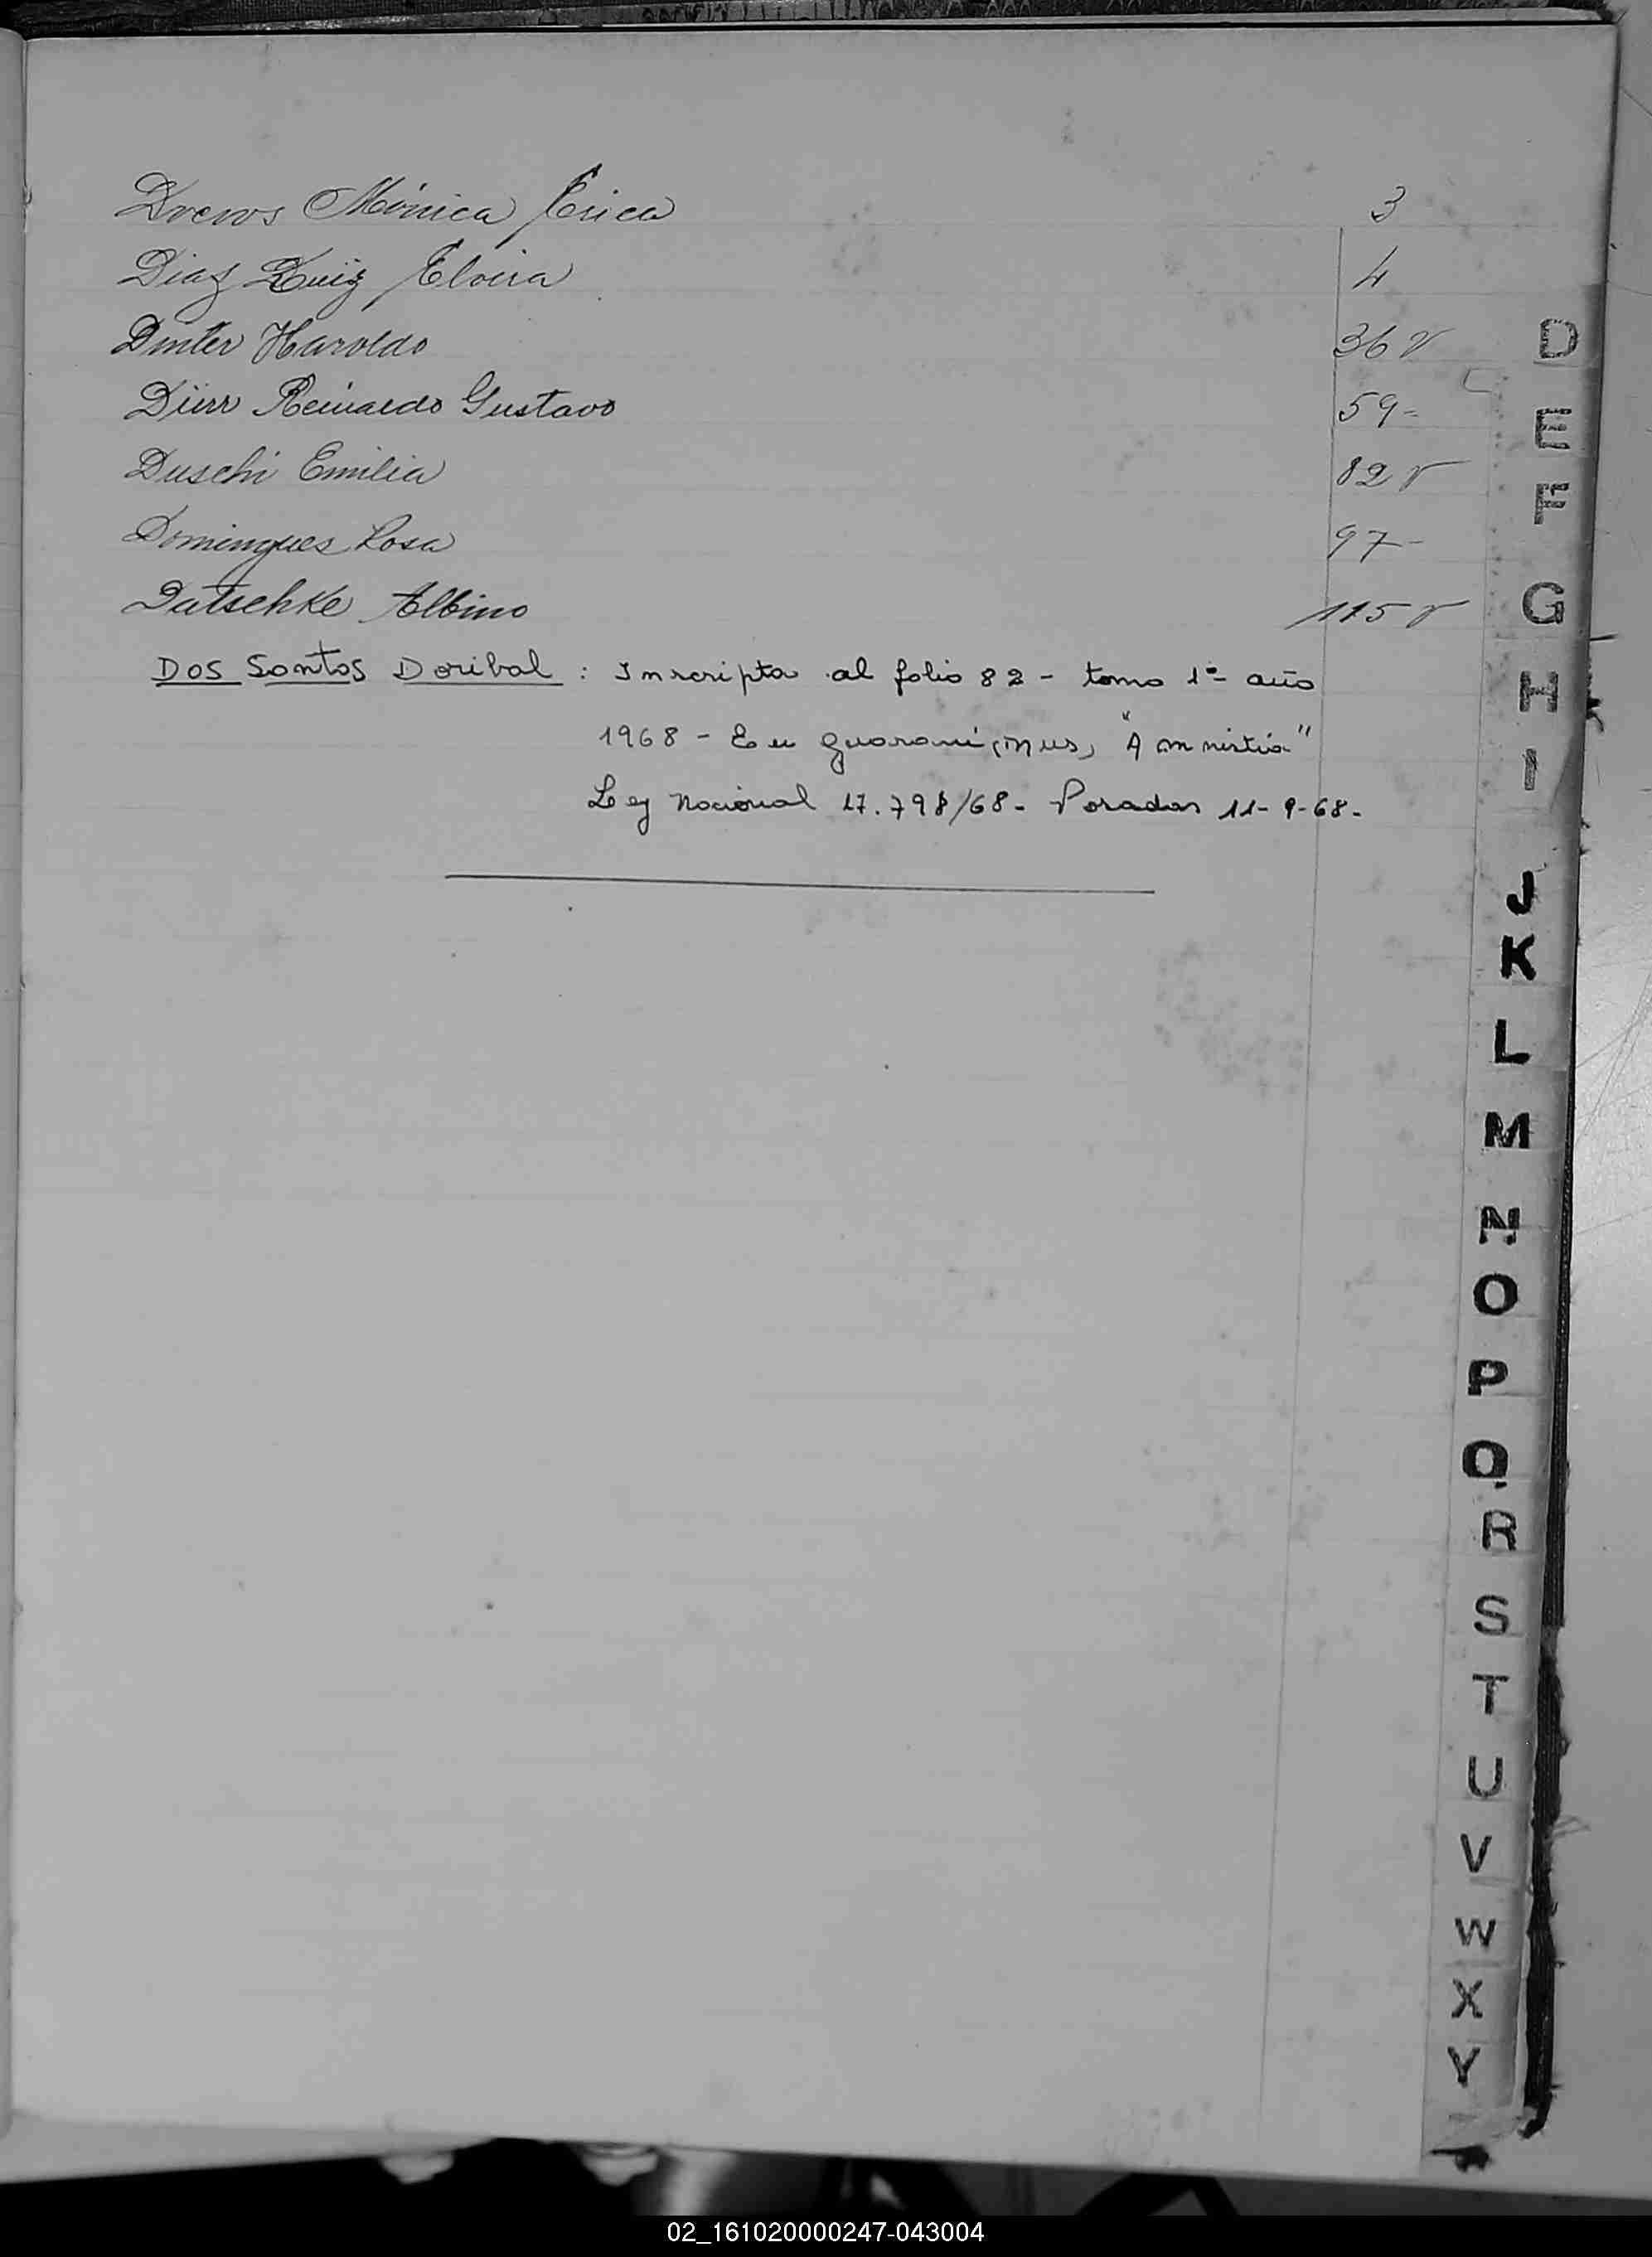 Drews Mónica Erica 3
Diaz Luiz Elvira 4
Dinter Haroldo 36 v
Dürr Reinardo Gustavo 59-
Duschi Emilia 82 v
Domingues Rosa 97-
Datschke Albino 115 v
Dos Santos Doribal : Inscripta al folio 82 - tomo 1º- año
1968 - En guarani, Mns, "Amnistia"
Ley Nacional 17.798/68- Posadas 11-9-68-
D
E
F
G
H
I
J
K
L
M
N
O
P
Q
R
S
T
U
V
W
X
Y
Z
02_161020000247-043004